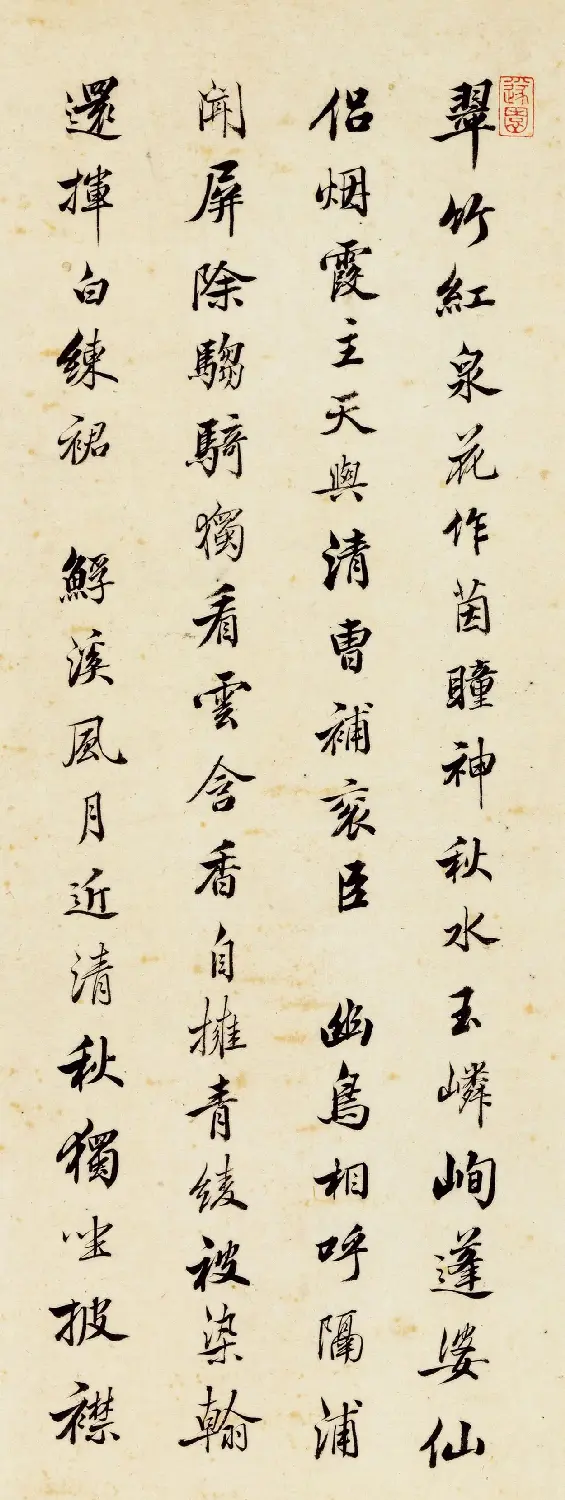 翠竹紅泉花作茵瞳神秋水玉嶙峋蓬婆仙
侶烟霞主天與清曹補衮臣 幽鳥相呼隔浦
聞屏除騶騎獨看雲含香自擁青綾被染翰
還揮白練裙 溪風月近清秋獨坐披襟